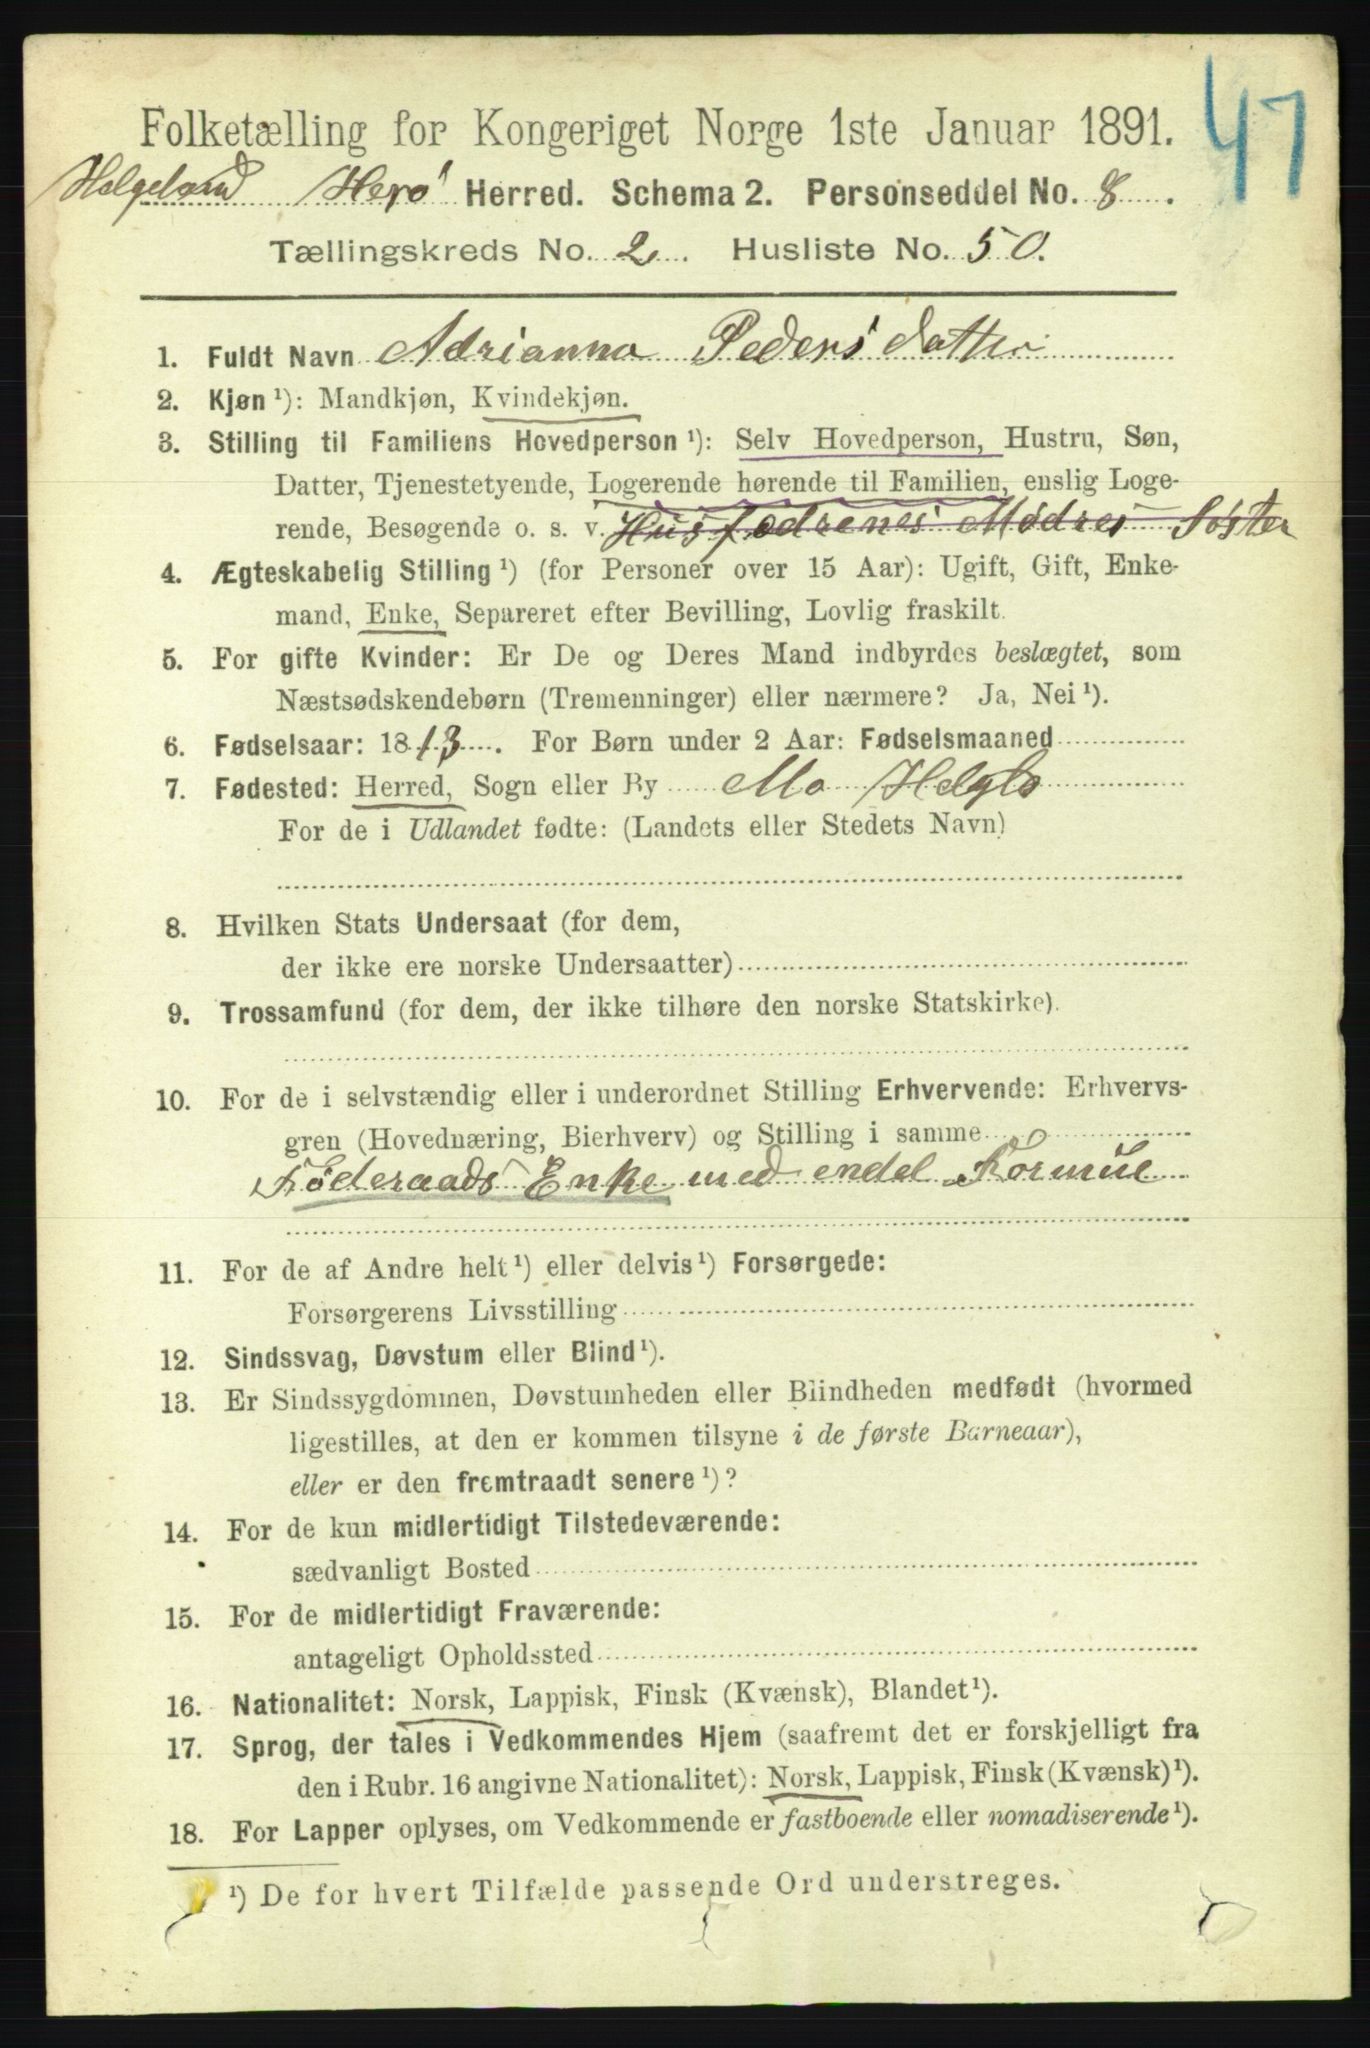 47
Folketælling for Kongeriget Norge 1ste Januar 1891.
Helgeland Herø Herred. Schema 2. Personseddel No. 8.
Tællingskreds No. 2. Husliste No. 50.
1. Fuldt Navn Adrianna Pedersdatter
2. Kjøn ¹): Mandkjøn, Kvindekjøn.
3. Stilling til Familiens Hovedperson ¹): Selv Hovedperson, Hustru, Søn,
Datter, Tjenestetyende, Logerende hørende til Familien, enslig Loge-
rende, Besøgende o. s. v. Husfædrenes Mødres Søster
4. Ægteskabelig Stilling ¹) (for Personer over 15 Aar): Ugift, Gift, Enke-
mand, Enke, Separeret efter Bevilling, Lovlig fraskilt.
5. For gifte Kvinder: Er De og Deres Mand indbyrdes beslægtet, som
Næstsødskendebørn (Tremenninger) eller nærmere? Ja, Nei ¹).
6. Fødselsaar: 1813. For Børn under 2 Aar: Fødselsmaaned
7. Fødested: Herred, Sogn eller By Mo Helgld
For de i Udlandet fødte: (Landets eller Stedets Navn)
8. Hvilken Stats Undersaat (for dem,
der ikke ere norske Undersaatter)
9. Trossamfund (for dem, der ikke tilhøre den norske Statskirke).
10. For de i selvstændig eller i underordnet Stilling Erhvervende: Erhvervs-
gren (Hovednæring, Bierhverv) og Stilling i samme
Føderaads Enke med endel Formue
11. For de af Andre helt ¹) eller delvis ¹) Forsørgede:
Forsørgerens Livsstilling
12. Sindssvag, Døvstum eller Blind ¹).
13. Er Sindssygdommen, Døvstumheden eller Blindheden medfødt (hvormed
ligestilles, at den er kommen tilsyne i de første Barneaar),
eller er den fremtraadt senere ¹)?
14. For de kun midlertidigt Tilstedeværende:
sædvanligt Bosted
15. For de midlertidigt Fraværende:
antageligt Opholdssted
16. Nationalitet: Norsk, Lappisk, Finsk (Kvænsk), Blandet ¹).
17. Sprog, der tales i Vedkommendes Hjem (saafremt det er forskjelligt fra
den i Rubr. 16 angivne Nationalitet): Norsk, Lappisk, Finsk (Kvænsk) ¹).
18. For Lapper oplyses, om Vedkommende er fastboende eller nomadiserende ¹).
¹) De for hvert Tilfælde passende Ord understreges.